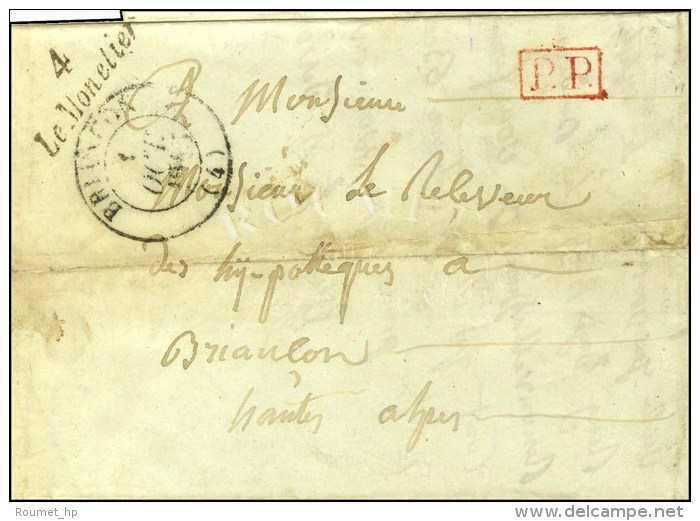 4
Le Monetier
P.P.
BRIANÇON
(4)
A Monsieur
Monsieur le Receveur
des hÿ-pottéques a
Briançon
hautes alpes
ROUMET
Roumet_hp
©delcampe.net